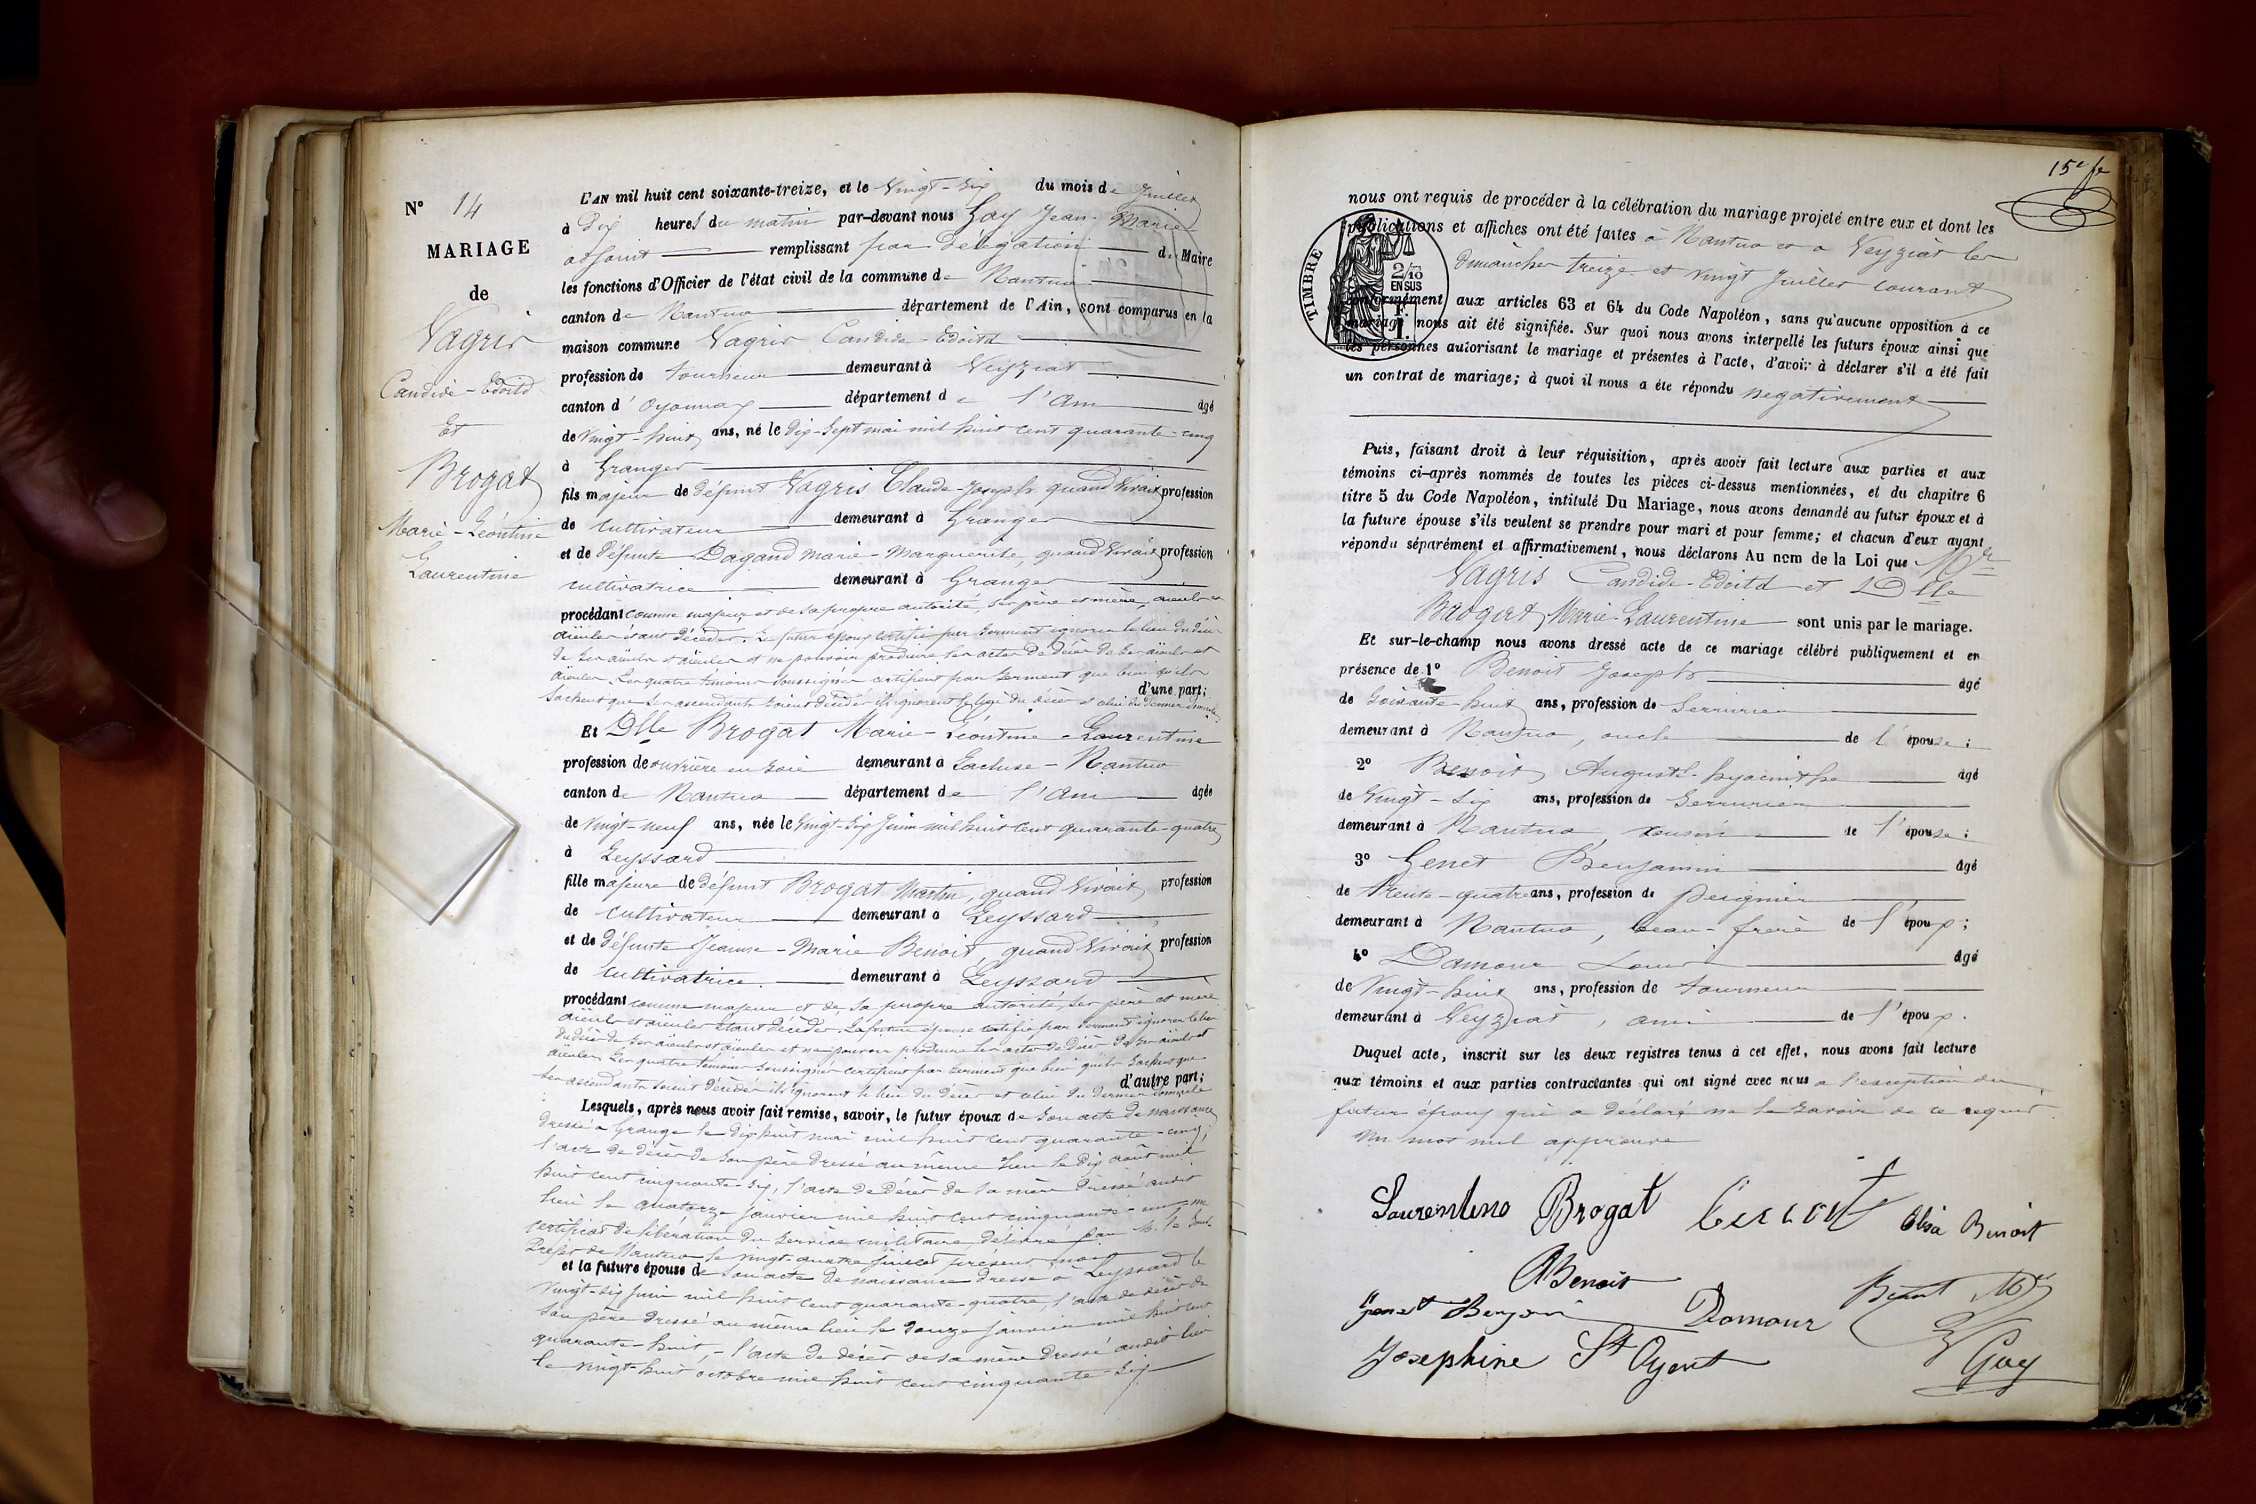 N° 14
MARIAGE
de
Vagris
Candide-Edoild
Et
Brogat
Marie-Léontine
Laurentine
L'AN mil huit cent soixante-treize, et le Vingt-Six du mois de Juillet
à Dix heures du matin par-devant nous Gay Jean-Marie
adjoint remplissant par délégation du Maire
les fonctions d'Officier de l'état civil de la commune de Nantua
canton de Nantua département de l'Ain, sont comparus en la
maison commune Vagris Candide-Edoild
profession de tourneur demeurant à Veyziat
canton d'Oyonnax département de l'Ain âgé
de Vingt-huit ans, né le Dix-Sept mai mil huit cent quarante-cinq
à Granges
fils majeur de défunt Vagris Claude-Joseph quand vivait profession
de cultivateur demeurant à Granges
et de Défunte Dagand Marie-Marguerite, quand vivait profession
cultivatrice demeurant à Granges
procédant comme majeur et de sa propre autorité, ses père et mère, aïeuls et
aïeules étant décédés. Le futur époux certifie par serment ignorer le lieu du décès
de ses aïeuls et aïeules et ne pouvoir produire les actes de décès de ses aïeuls et
aïeules. Les quatre témoins soussignés certifient par serment que bien qu'ils
sachent que ses ascendants soient décédés ils ignorent le lieu du décès et celui du dernier domicile
d'une part;
Et Dlle Brogat Marie-Léontine-Laurentine
profession de ouvrière en soie demeurant à Lacluse-Nantua
canton de Nantua département de l'Ain âgée
de Vingt-neuf ans, née le Vingt-Six Juin mil huit cent quarante-quatre
à Leyssard
fille majeure de défunt Brogat Martin, quand vivait profession
de cultivateur demeurant à Leyssard
et de Défunte Jeanne-Marie Benoit, quand vivait profession
de cultivatrice demeurant à Leyssard
procédant comme majeur et de sa propre autorité, ses père et mère
aïeuls et aïeules étant décédés. La future épouse certifie par serment ignorer le lieu
du décès de ses aïeuls et aïeules et ne pouvoir produire les actes de décès de ses aïeuls et
aïeules. Les quatre témoins soussignés certifient par serment que bien qu'ils sachent que
ses ascendants soient décédés ils ignorent le lieu du décès et celui du dernier domicile
d'autre part;
Lesquels, après nous avoir fait remise, savoir, le futur époux de son acte de naissance
dressé à Granges le Dix huit mai mil huit cent quarante-cinq,
l'acte de décès de son père dressé au même lieu le Dix août mil
huit cent cinquante-six, l'acte de décès de sa mère dressé audit
lieu le quatorze janvier mil huit cent cinquante-un, un
certificat de libération du service militaire, délivré par M. le Sous-
Préfet de Nantua le vingt-quatre juillet présent mois
et la future épouse de son acte de naissance dressé à Leyssard le
vingt-six juin mil huit cent quarante-quatre, l'acte de décès de
son père dressé au même lieu le Douze janvier mil huit cent
quarante-huit,- l'acte de décès de sa mère dressé audit lieu
le vingt-huit octobre mil huit cent cinquante six
15e fe
nous ont requis de procéder à la célébration du mariage projeté entre eux et dont les
publications et affiches ont été faites à Nantua et à Veyziat les
Dimanches treize et vingt Juillet courant
conformément aux articles 63 et 64 du Code Napoléon, sans qu'aucune opposition à ce
mariage nous ait été signifiée. Sur quoi nous avons interpellé les futurs époux ainsi que
les personnes autorisant le mariage et présentes à l'acte, d'avoir à déclarer s'il a été fait
un contrat de mariage; à quoi il nous a été répondu négativement
TIMBRE
2/10
EN SUS
1 F.
Puis, faisant droit à leur réquisition, après avoir fait lecture aux parties et aux
témoins ci-après nommés de toutes les pièces ci-dessus mentionnées, et du chapitre 6
titre 5 du Code Napoléon, intitulé Du Mariage, nous avons demandé au futur époux et à
la future épouse s'ils veulent se prendre pour mari et pour femme; et chacun d'eux ayant
répondu séparément et affirmativement, nous déclarons Au nom de la Loi que Mr
Vagris Candide-Edoild et Dlle
Brogat Marie-Laurentine sont unis par le mariage.
Et sur-le-champ nous avons dressé acte de ce mariage célébré publiquement et en
présence de 1° Benoit Joseph âgé
de Soixante-huit ans, profession de Serrurier
demeurant à Nantua, oncle de l'épouse;
2° Benoit Auguste-hyacinthe âgé
de Vingt-Six ans, profession de Serrurier
demeurant à Nantua, cousin de l'épouse;
3° Genet Benjamin âgé
de trente-quatre ans, profession de peignier
demeurant à Nantua, beau-frère de l'époux;
4° Damour Louis âgé
de Vingt-huit ans, profession de tourneur
demeurant à Veyziat, ami de l'époux.
Duquel acte, inscrit sur les deux registres tenus à cet effet, nous avons fait lecture
aux témoins et aux parties contractantes qui ont signé avec nous à l'exception du
futur époux qui a déclaré ne le savoir de ce requis
Un mot nul approuvé
Laurentine Brogat Benoit Elisa Benoit
ABenoit
Genet Benjamin Damour
Josephine St Oyent Gay